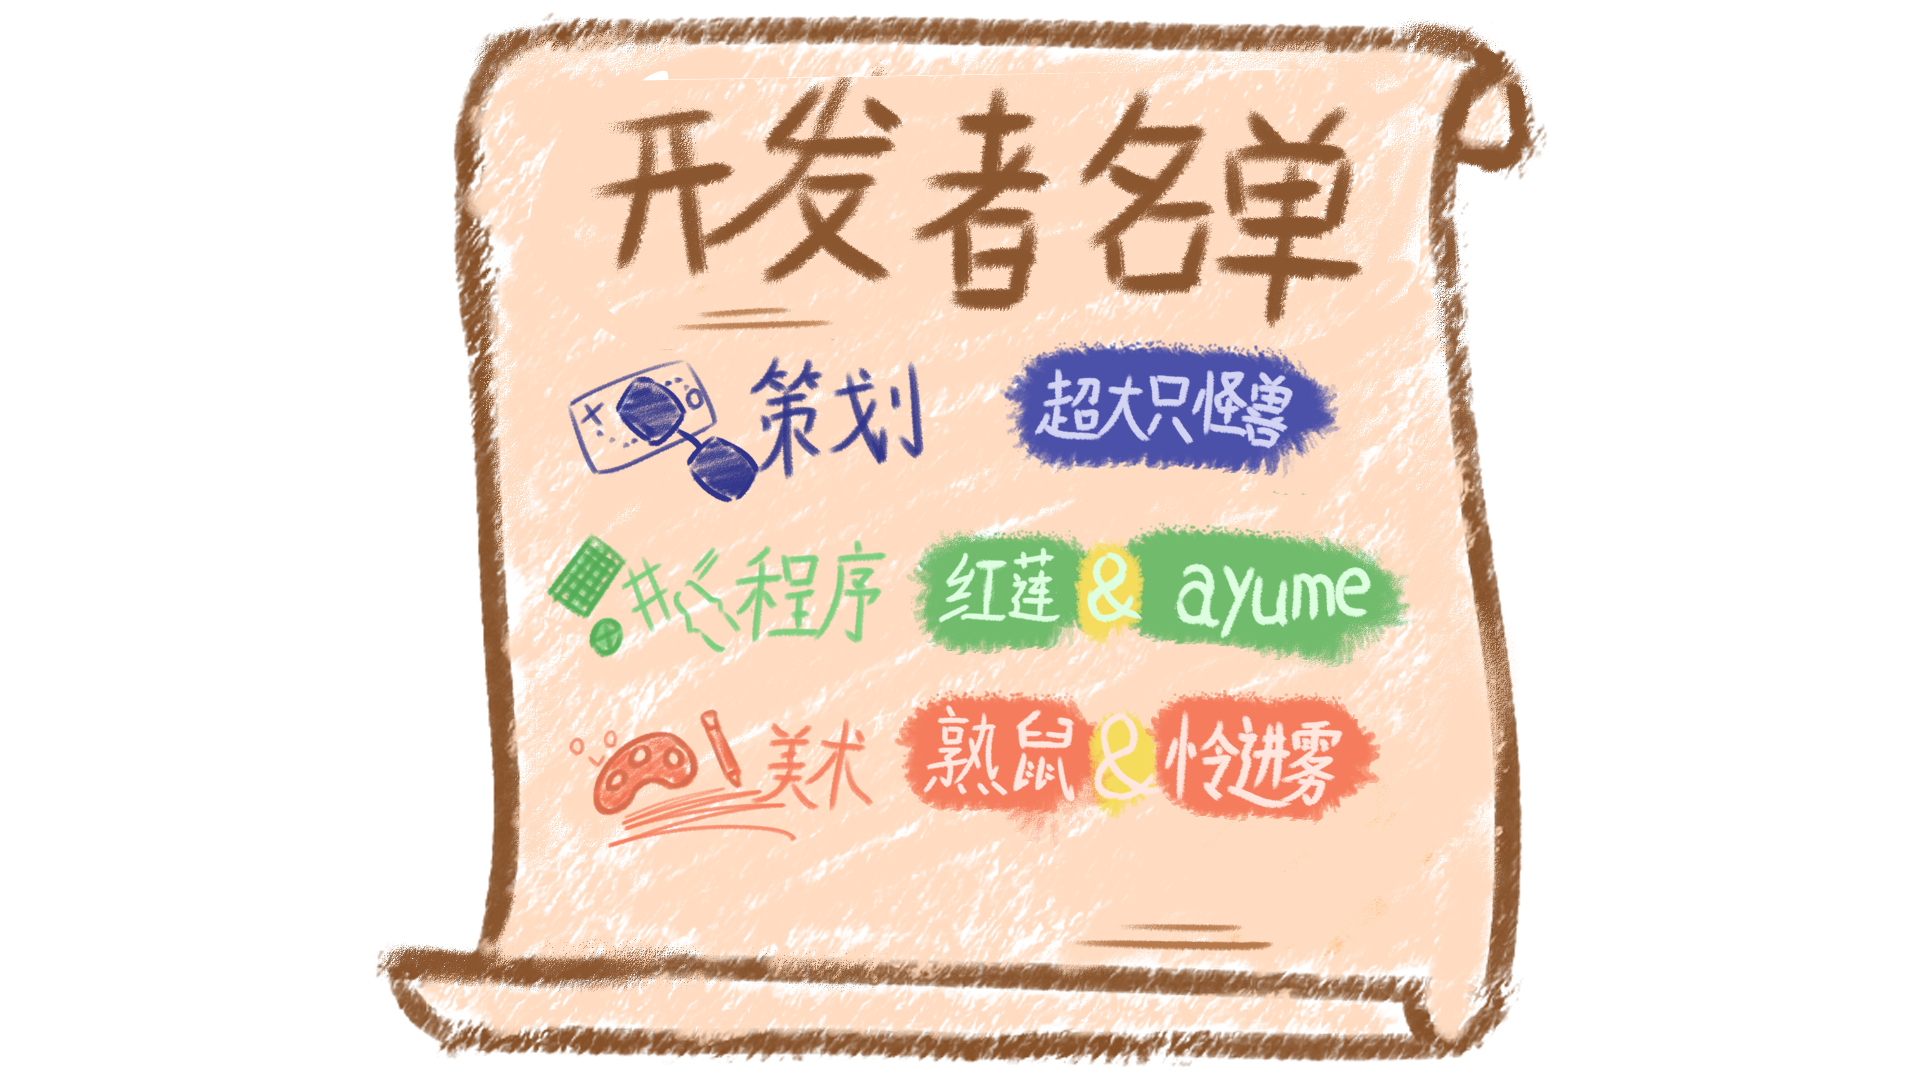 开发者名单
策划 超大只怪兽
程序 红莲 & ayume
美术 熟鼠 & 怜进雾